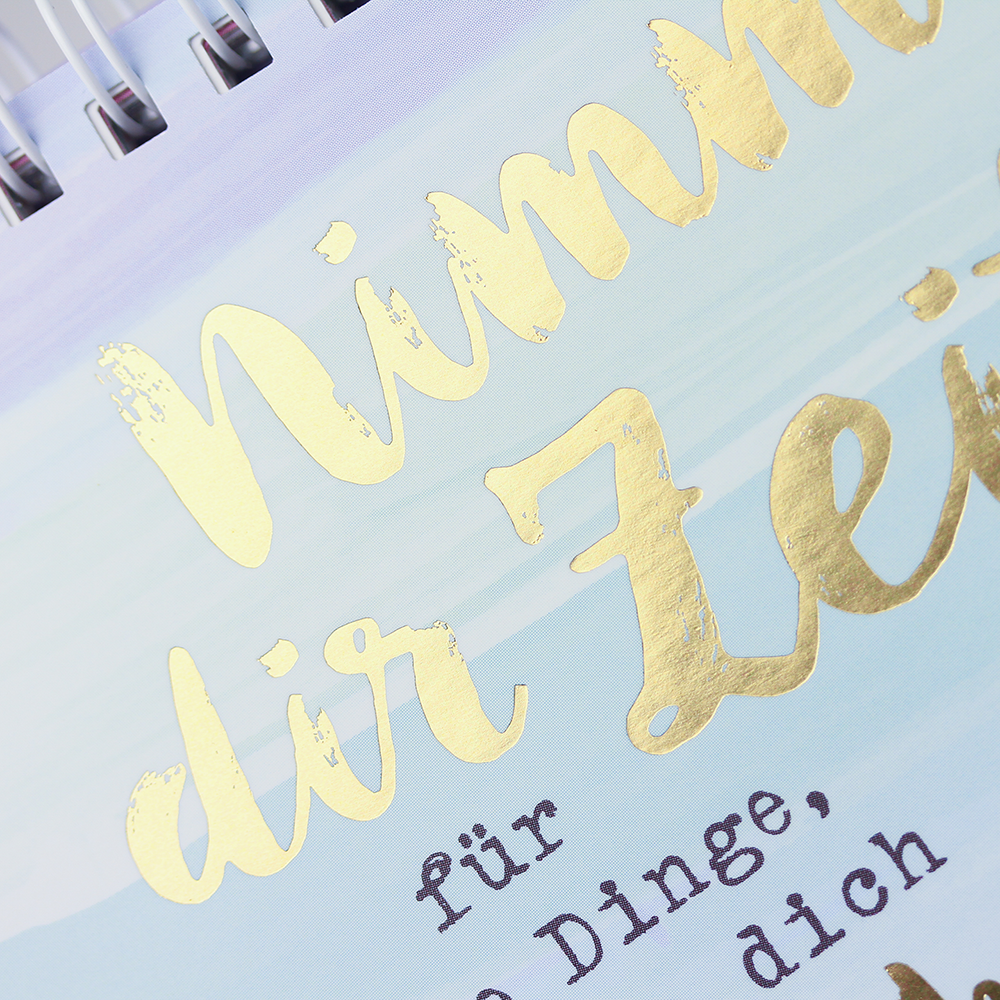 Nimm
dir Zeit
für
Dinge,
dich